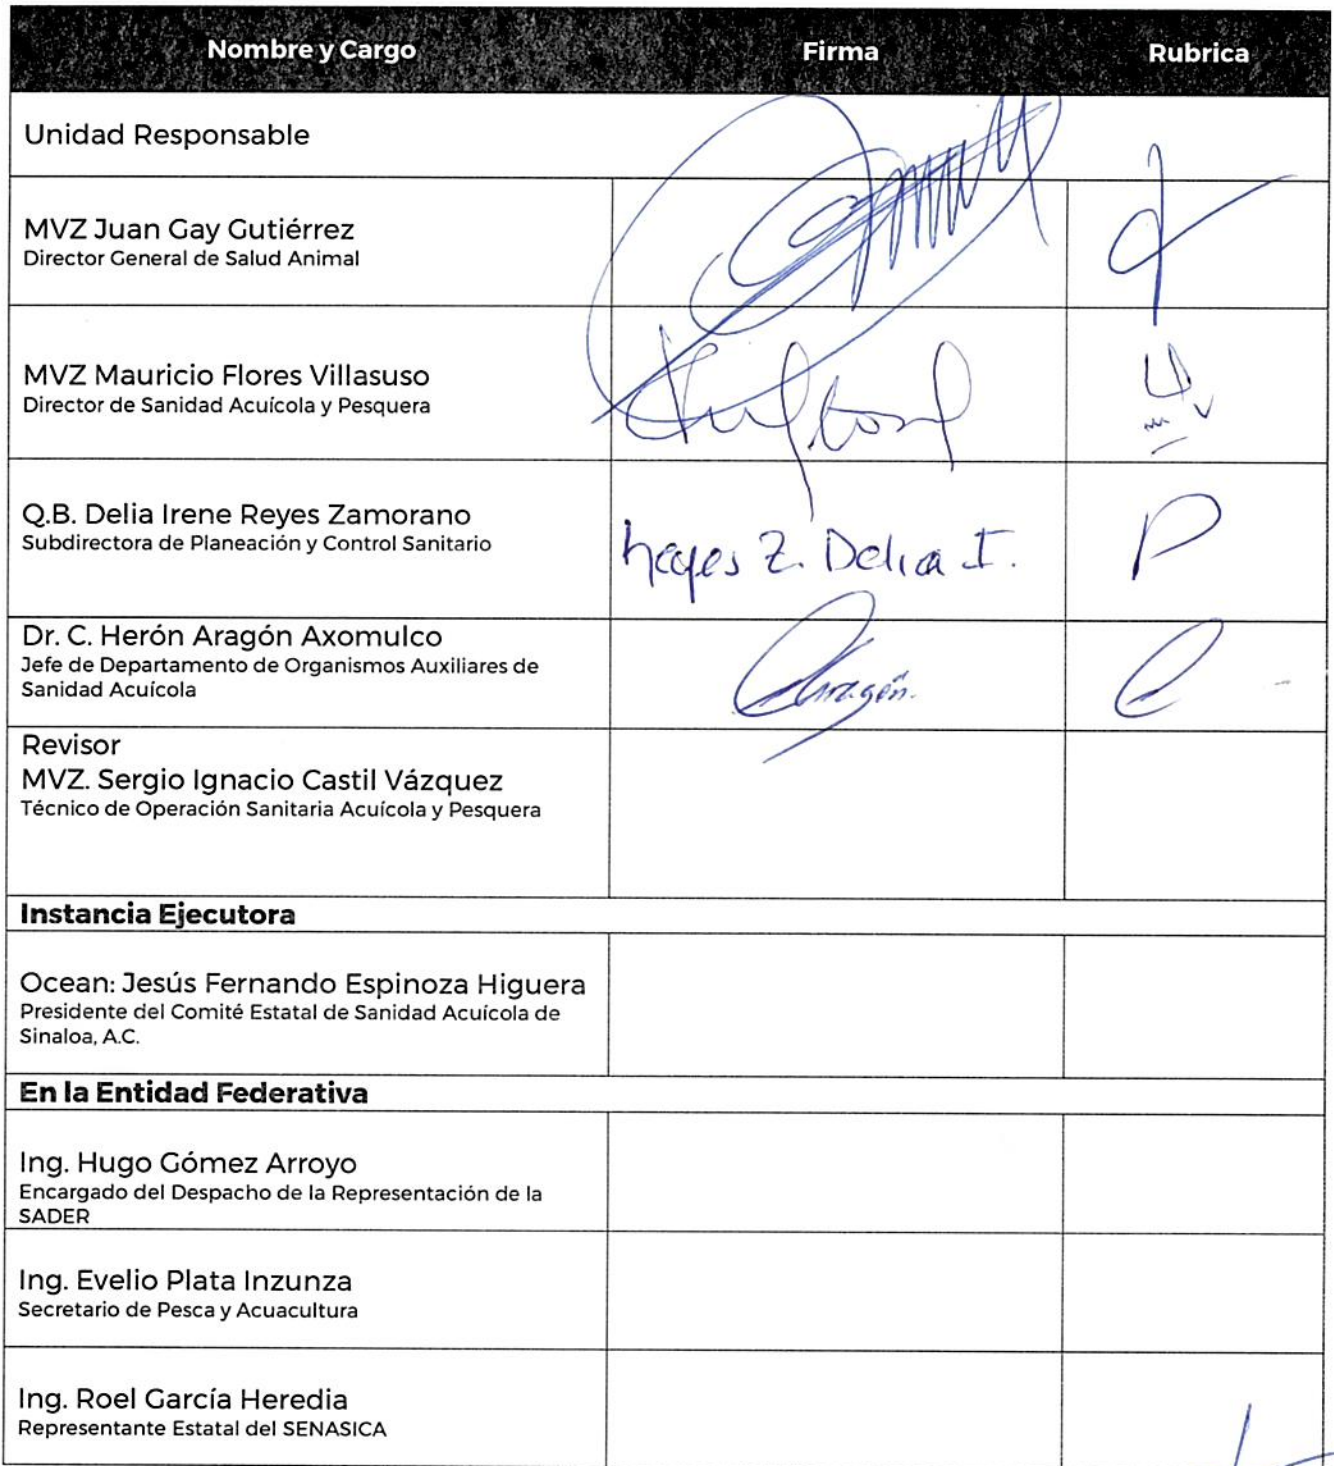 Nombre y Cargo Firma Rubrica
Unidad Responsable
MVZ Juan Gay Gutiérrez
Director General de Salud Animal
MVZ Mauricio Flores Villasuso
Director de Sanidad Acuícola y Pesquera
Q.B. Delia Irene Reyes Zamorano
Subdirectora de Planeación y Control Sanitario
Reyes Z. Delia I.
Dr. C. Herón Aragón Axomulco
Jefe de Departamento de Organismos Auxiliares de
Sanidad Acuícola
Aragón
Revisor
MVZ. Sergio Ignacio Castil Vázquez
Técnico de Operación Sanitaria Acuícola y Pesquera
Instancia Ejecutora
Ocean: Jesús Fernando Espinoza Higuera
Presidente del Comité Estatal de Sanidad Acuícola de
Sinaloa, A.C.
En la Entidad Federativa
Ing. Hugo Gómez Arroyo
Encargado del Despacho de la Representación de la
SADER
Ing. Evelio Plata Inzunza
Secretario de Pesca y Acuacultura
Ing. Roel García Heredia
Representante Estatal del SENASICA